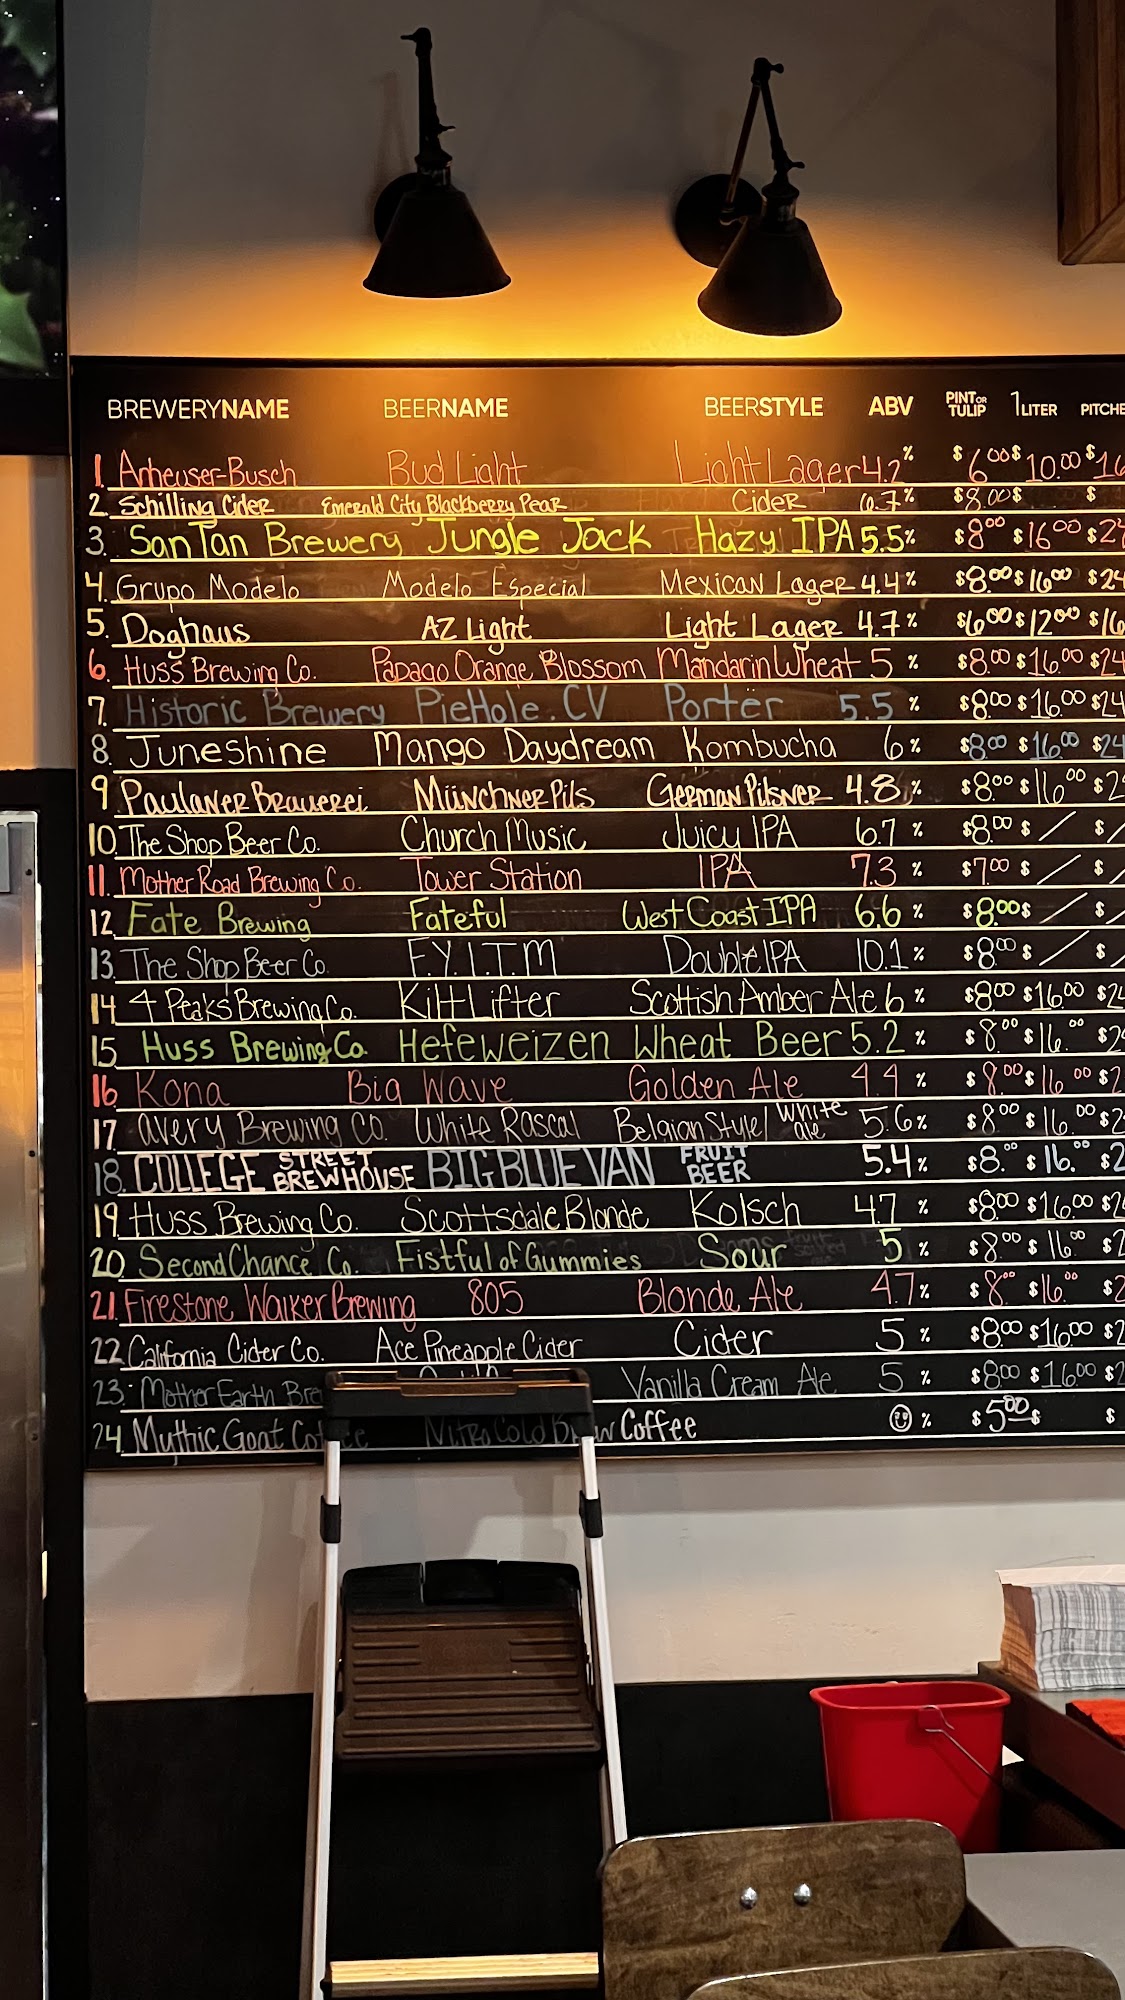 BREWERYNAME BEERNAME BEERSTYLE ABV PINT OR TULIP 1LITER PITCHE
1. Anheuser-Busch Bud Light Light Lager 4.2% $6.00 $10.00 $16
2. Schilling Cider Emerald City Blackberry Pear Cider 6.7% $8.00 $ $
3. SanTan Brewery Jungle Jack Hazy IPA 5.5% $8.00 $16.00 $2
4. Grupo Modelo Modelo Especial Mexican Lager 4.4% $8.00 $16.00 $24
5. Doghaus AZ Light Light Lager 4.7% $6.00 $12.00 $16
6. Huss Brewing Co. Papago Orange Blossom Mandarin Wheat 5 % $8.00 $16.00 $24
7. Historic Brewery PieHole.CV Porter 5.5 % $8.00 $16.00 $24
8. Juneshine Mango Daydream Kombucha 6% $8.00 $16.00 $24
9. Paulaner Brauerei Münchner Pils German Pilsner 4.8% $8.00 $16.00 $2
10. The Shop Beer Co. Church Music Juicy IPA 6.7 % $8.00 $ / $ /
11. Mother Road Brewing Co. Tower Station IPA 7.3 % $7.00 / $ /
12. Fate Brewing Fateful West Coast IPA 6.6 % $8.00 $ / $ /
13. The Shop Beer Co. F.Y.I.T.M Double IPA 10.1 % $8.00 $ / $ /
14 4 Peaks Brewing Co. Kilt Lifter Scottish Amber Ale 6 % $8.00 $16.00 $2
15 Huss Brewing Co. Hefeweizen Wheat Beer 5.2 % $8.00 $16.00 $2
16 Kona Big Wave Golden Ale 4.4 % $8.00 $16.00 $2
17. avery Brewing Co. White Rascal Belgian Style/ White ale 5.6% $8.00 $16.00 $2
18. COLLEGE STREET BREWHOUSE BIG BLUE VAN FRUIT BEER 5.4% $8.00 $16.00 $2
19. Huss Brewing Co. Scottsdale Blonde Kolsch 4.7 % $8.00 $16.00 $2
20. Second Chance Co. Fistful of Gummies Sour 5 % $8.00 $16.00 $2
21. Firestone Walker Brewing 805 Blonde Ale 4.7% $8.00 $16.00 $2
22. California Cider Co. Ace Pineapple Cider Cider 5 % $8.00 $16.00 $2
23. Mother Earth Bre Vanilla Cream Ale 5 % $8.00 $16.00 $2
24. Mythic Goat Coffee Nitro Cold Brew Coffee % $5.00 $ $